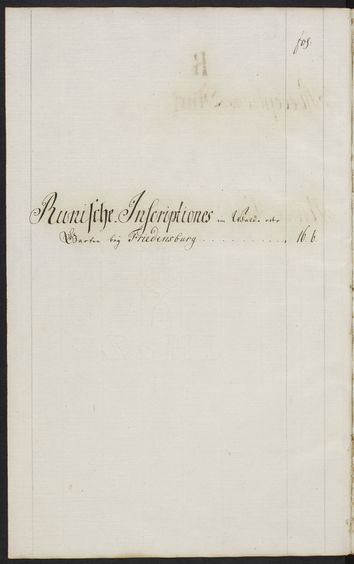 fol.
Runische Inscriptiones im Wald. oder
Garten beÿ Friedensburg . . . . . . . . . . 16. b.